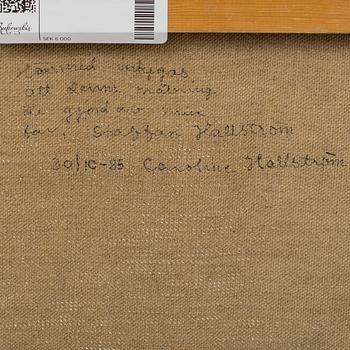 Bukowskis
SEK 6 000
Härmed intygas
att denna målning
är gjord av min
far, Staffan Hallström
30/10-85 Caroline Hallström